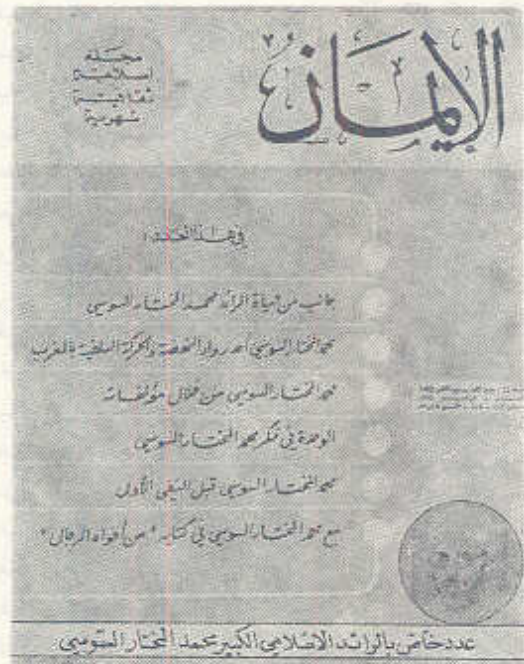 الإيمان
مجلة
اسلامية
ثقافية
شهرية
في هذا العدد:
جانب من حياة الرائد محمد المختار السوسي
محمد المختار السوسي أحد رواد النهضة والحركة السلفية بالمغرب
محمد المختار السوسي من خلال مؤلفاته
الوحدة في فكر محمد المختار السوسي
محمد المختار السوسي قبل النفي الأول
مع محمد المختار السوسي في كتابه "من أفواه الرجال"
عدد خاص بالرائد الاسلامي الكبير محمد المختار السوسي